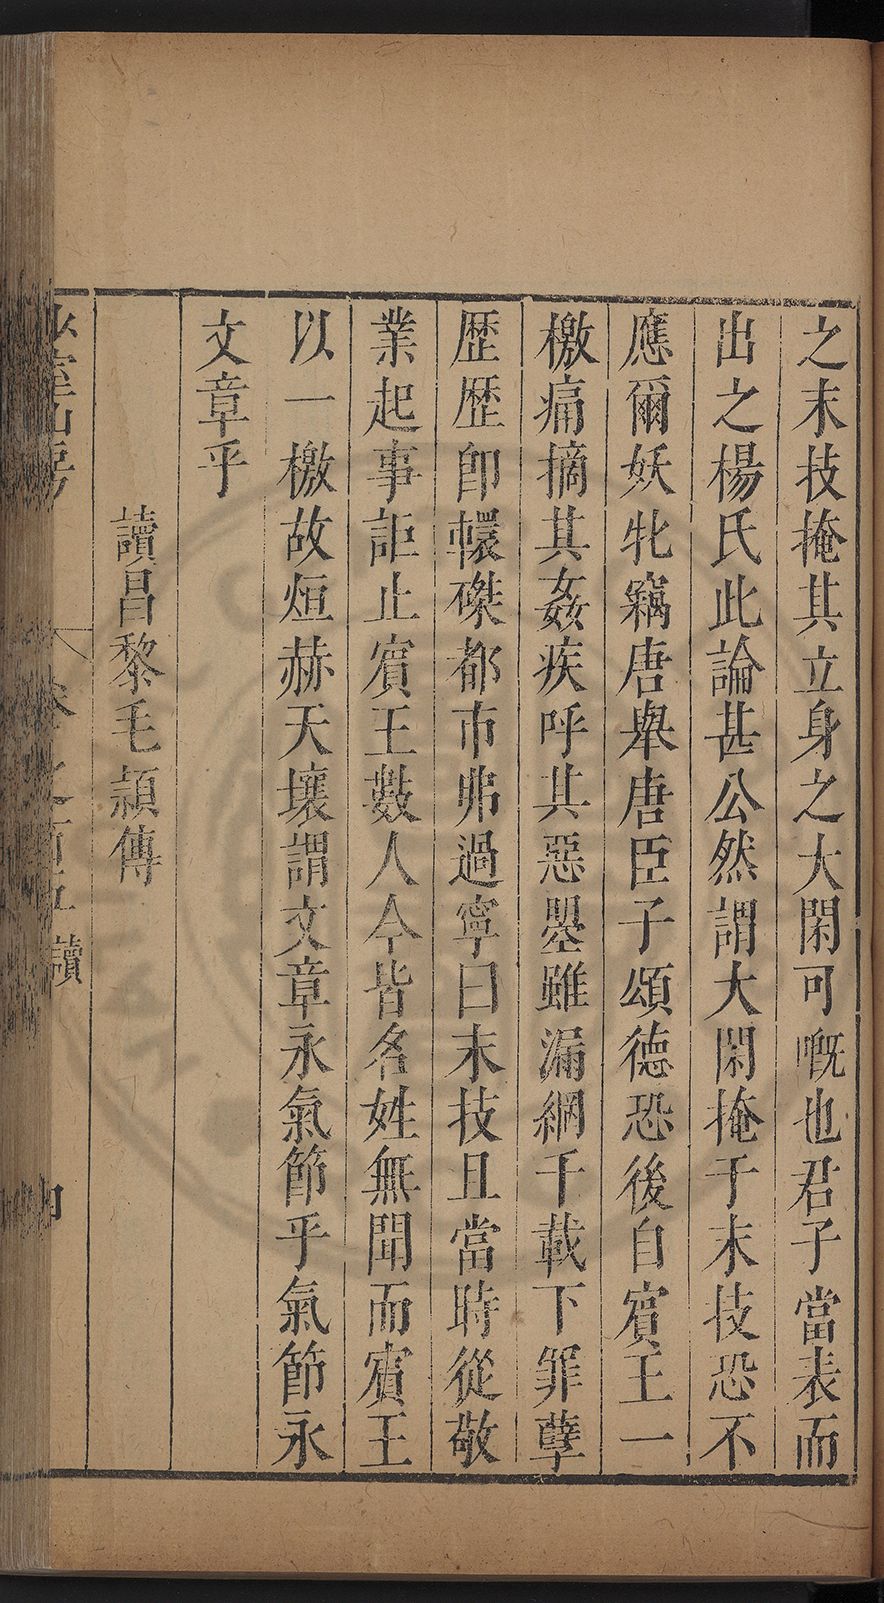 之末技掩其立身之大閑可嘅也君子當表而
出之楊氏此論甚公然謂大閑掩于末技恐不
應爾妖牝竊唐舉唐臣子頌德恐後自賔王一
檄痛摘其姦疾呼其惡曌雖漏網千載下罪孽
歴歴卽轘磔都市弗過寧曰末技且當時從敬
業起事詎止賔王數人今皆名姓無聞而賔王
以一檄故烜赫天壤謂文章永氣節乎氣節永
文章乎
讀昌黎毛頴傳
讀